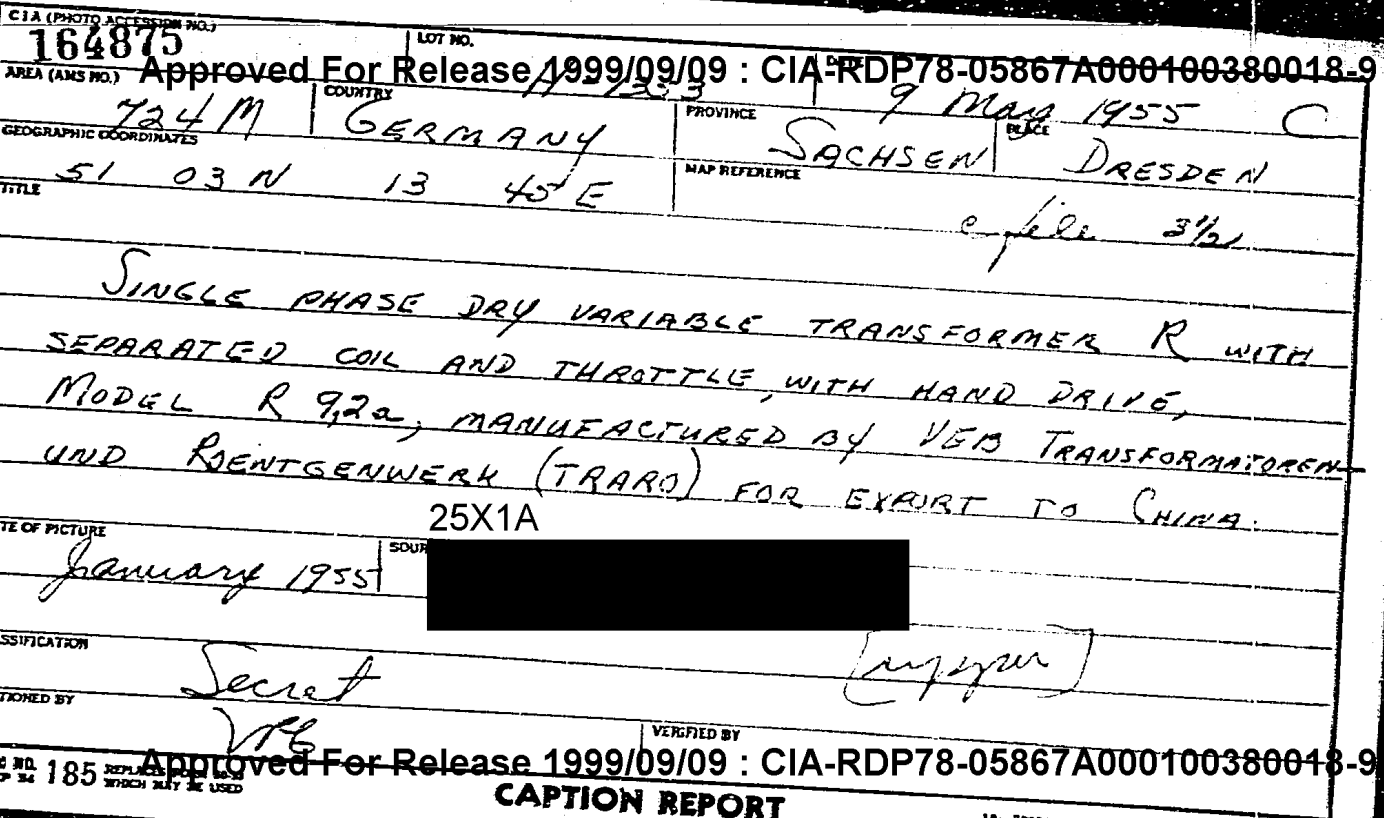 CIA (PHOTO ACCESSION NO.)
164875
LOT NO.
Approved For Release 1999/09/09 : CIA-RDP78-05867A000100380018-9
AREA (AMS NO.)
724 M
COUNTRY
GERMANY
9 May 1955 C
PROVINCE
SACHSEN
PLACE
DRESDEN
GEOGRAPHIC COORDINATES
51 03 N 13 45 E
MAP REFERENCE
TITLE
c file 3½
SINGLE PHASE DRY VARIABLE TRANSFORMER R WITH
SEPARATED COIL AND THROTTLE, WITH HAND DRIVE,
MODEL R 9,2a, MANUFACTURED BY VEB TRANSFORMATOREN-
UND ROENTGENWERK (TRARO) FOR EXPORT TO CHINA.
25X1A
TE OF PICTURE
January 1955
SOUR
SSIFICATION
Secret
TIONED BY
VERIFIED BY
185 WHICH MAY BE USED
Approved For Release 1999/09/09 : CIA-RDP78-05867A000100380018-9
CAPTION REPORT